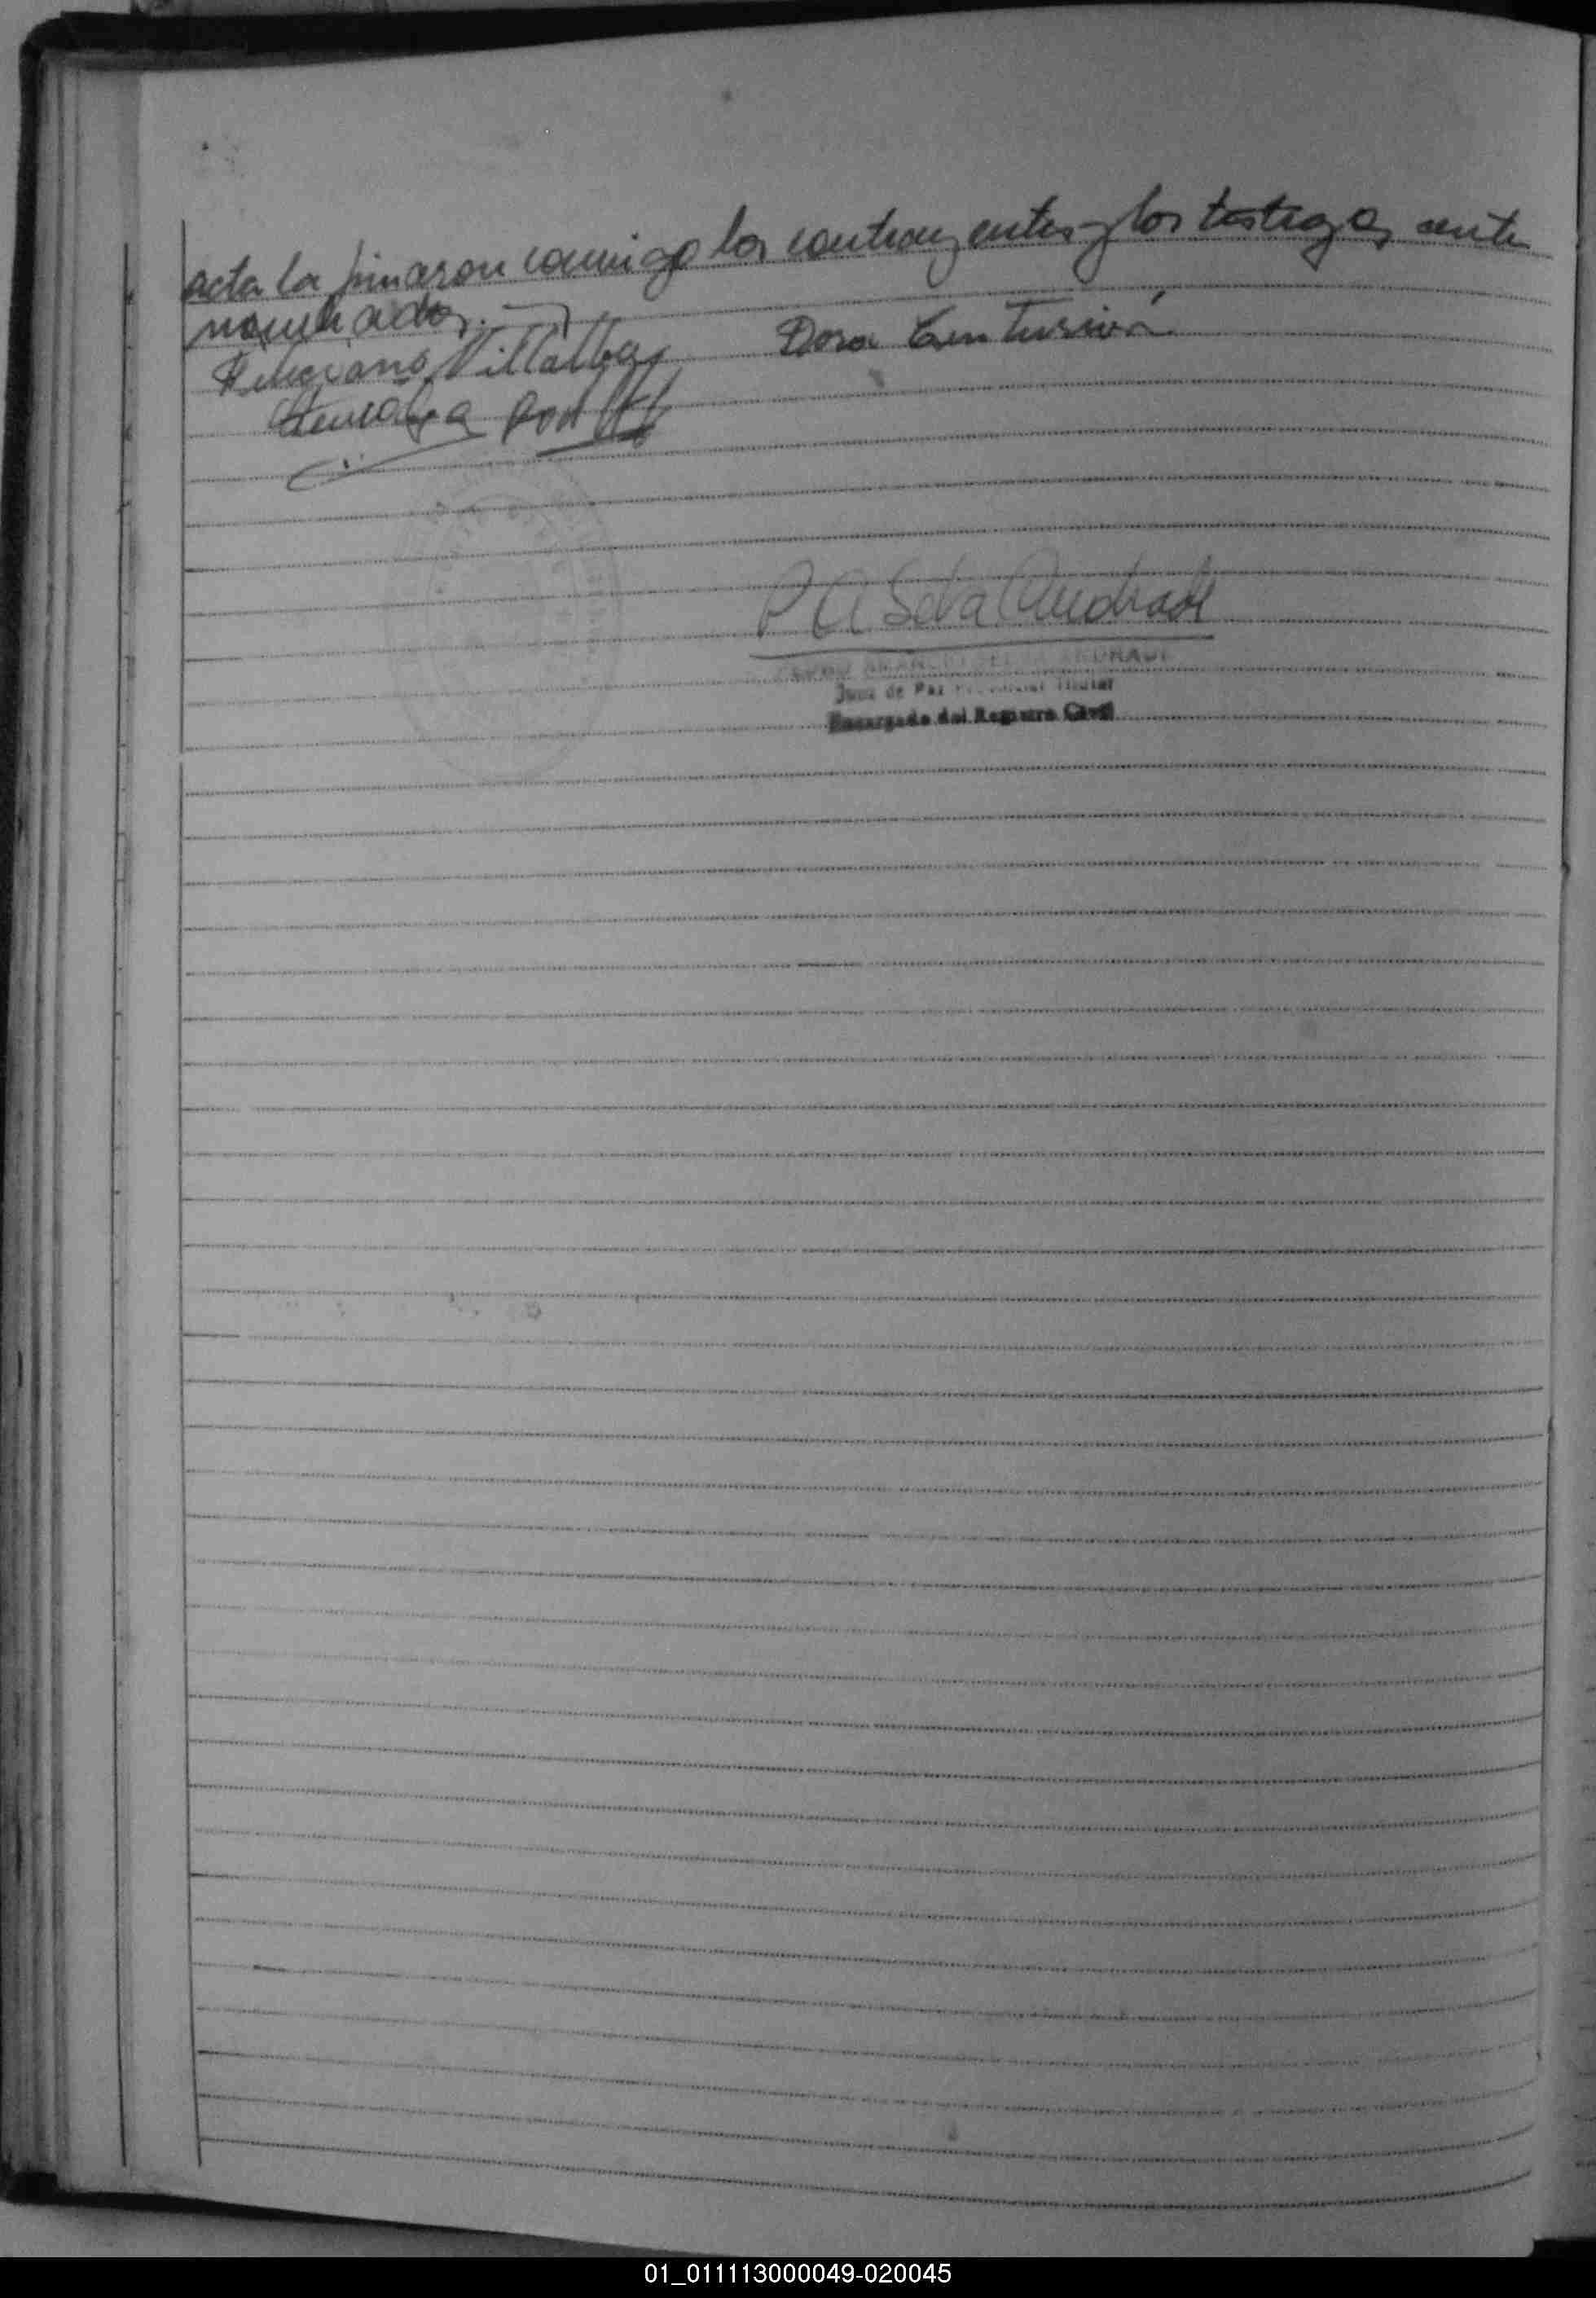 acta la firmaron conmigo los contrayentes y los testigos ante
nombrados.
Feliciano Villalba Dora Centurión
P A Selva Andrade
ANDRADE
Juez de Paz Titular
Encargado del Registro Civil
01_011113000049-020045